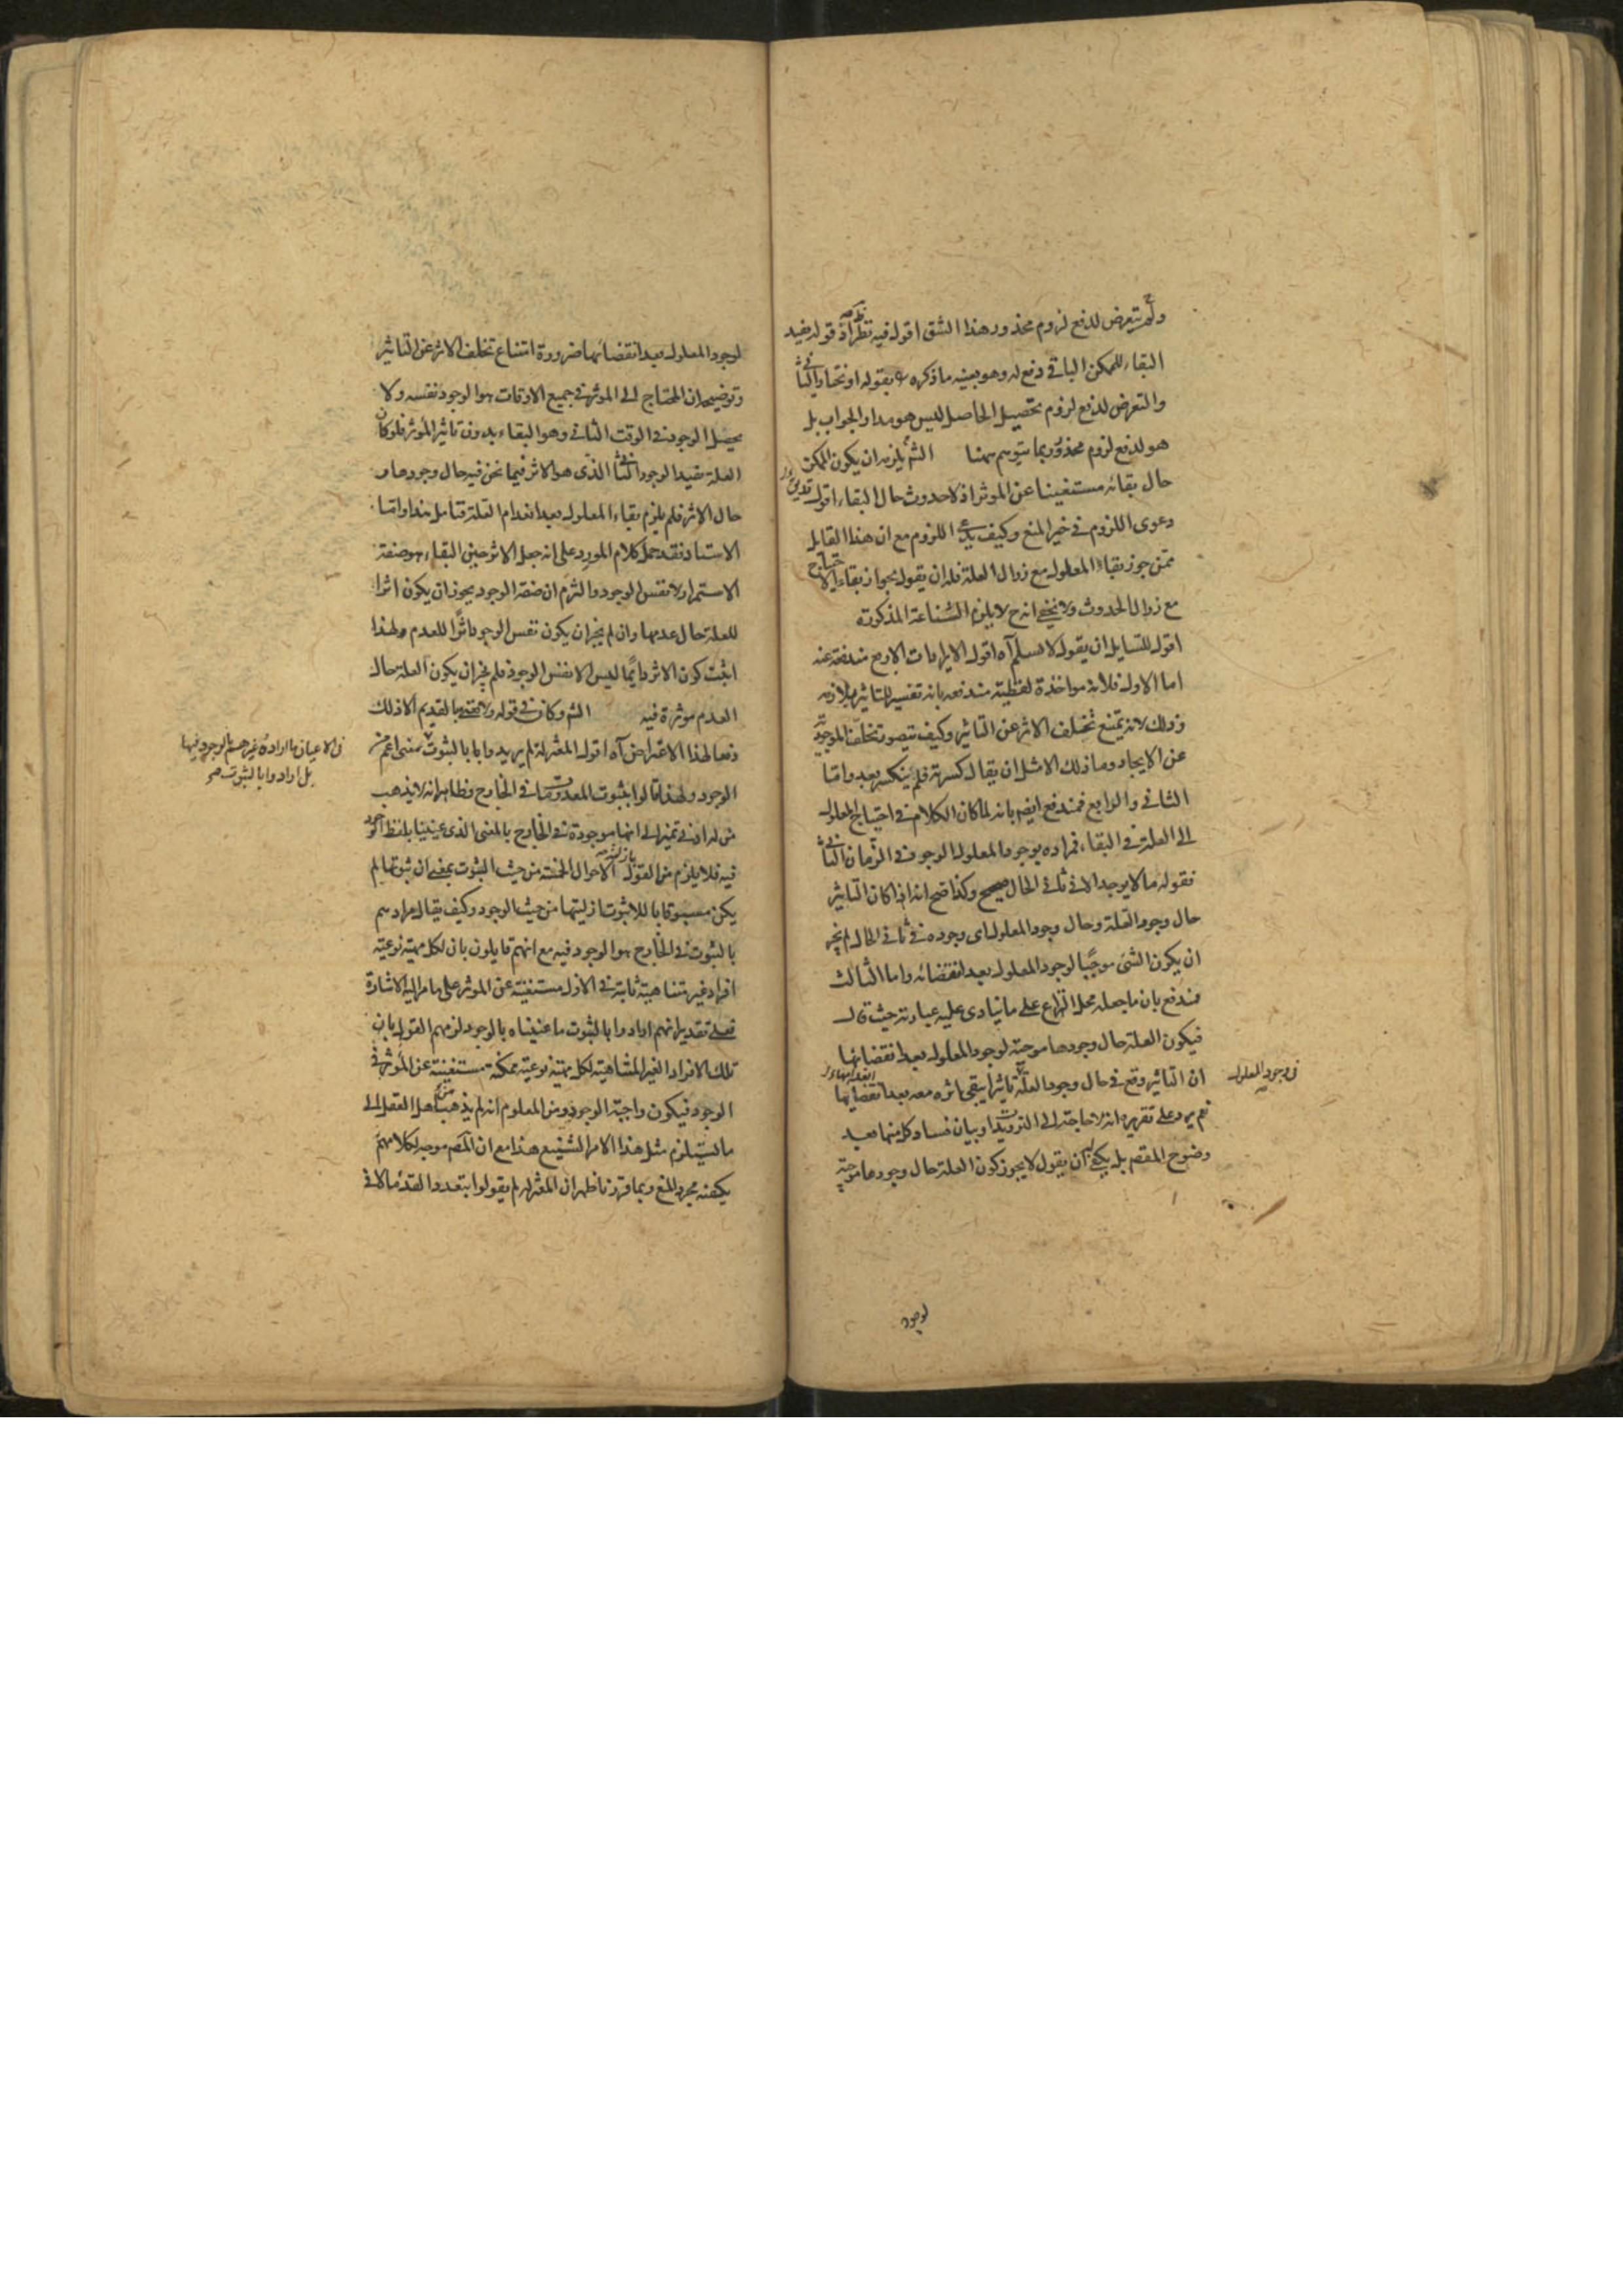 ولم يتعرض لدفع لزوم محذور هذا الشق اقول فيه نظر اذ قوله يفيد
البقاء للممكن الباقى دفع له وهو بعينه ما ذكره بقوله او نختار الثانى
والتعرض لدفع لزوم تحصيل الحاصل ليس هو مدار الجواب بل
هو لدفع لزوم محذور ربما يتوهم ههنا الش يلزم ان يكون الممكن
حال بقائه مستغنيا عن الموثر اذ لا حدوث حال البقاء اقول
دعوى اللزوم فى حيز المنع وكيف يدعى اللزوم مع ان هذا القايل
ممن جوز بقاء المعلول مع زوال العلة فله ان يقول بجواز بقاء الاحتياج
مع زوال الحدوث ولا يخفى انه ح لا يلزم الشناعة المذكورة
اقول للسايل ان يقول لا نسلم آه اقول الايرادات الاربع مندفعة عنه
اما الاول فلانه مواخذة لفظية مندفعة بانه تفسير للتاثير بلازمه
وذلك لانه يمتنع تخلف الاثر عن التاثير وكيف يتصور تخلف الموجودية
عن الايجاد وما ذلك الا مثل ان يقال كسرته فلم ينكسر بعد واما
الثانى والرابع فمندفع ايضا بانه لما كان الكلام فى احتياج المعلول
الى العلة فى البقاء فمراده بوجود المعلول الوجود فى الزمان الثانى
فقوله مالا يوجد الا فى ثانى الحال صحيح وكذا صح انه اذا كان التاثير
حال وجود العلة وحال وجود المعلول اى وجوده فى ثانى الحال لم يجز
ان يكون الشئ موجبا لوجود المعلول بعد انقضائه واما الثالث
فمندفع بان ما جعله محل النزاع على ما ينادى عليه عبارته حيث قال
فيكون العلة حال وجودها موجبة لوجود المعلول بعد انقضائها
ان التاثير وقع فى حال وجود العلة تاثيرا يبقى اثره معه بعد انقضائها
فى وجود المعلول
نعم يرد على تقريره انه لا حاجة الى الترديد وبيان فساد كل منهما بعد
وضوح المقصم بل يكفى ان يقول لا يجوز كون العلة حال وجودها موجبة
لوجود
لوجود المعلول بعد انقضائها ضرورة امتناع تخلف الاثر عن التاثير
وتوضيحه ان المحتاج الى الموثر فى جميع الاوقات هو الوجود نفسه ولا
يحصل الوجود فى الوقت الثانى وهو البقاء بدون تاثير المؤثر فلو كان
العلة مفيدا لوجود الثانى الذى هو الاثر فيما نحن فيه حال وجودها و
حال الاثر فلم يلزم بقاء المعلول بعد انعدام العلة فتامل هذا واما
الاستناد فقد حمل كلام المورد على انه جعل الاثر حين البقاء هو صفة
الاستمرار لا نفس الوجود والتزم ان صفة الوجود يجوز ان يكون اثرا
للعلة حال عدمها وان لم يجز ان يكون نفس الوجود اثرا للعدم ولهذا
اثبت كون الاثر دايما ليس الا نفس الوجود فلم يجز ان يكون العلة حال
العدم موثرة فيه الش وكان فى قوله ولا بالقديم الا ذلك
دفعا لهذا الاعتراض آه اقول المعتزلة لم يريدوا بالثبوت معنى اعم من
الوجود ولهذا قالوا بثبوت المعدومات فى الخارج وظاهر انه لا يذهب
من له ادنى تميز الى انها موجودة فى الخارج بالمعنى الذى عنينا بلفظ الوجود
فيه فلا يلزم من القول بازلية الاحوال الخمسة من حيث الثبوت بمعنى ان ثبوتها لم
يكن مسبوقا باللاثبوت ازليتها من حيث الوجود وكيف يقال مرادهم
بالثبوت فى الخارج هو الوجود فيه مع انهم قايلون بان لكل مهية نوعية
افراد غير متناهية ثابتة فى الازل مستغنية عن الموثر على ما مر اليه الاشارة
فعلى تقدير انهم ارادوا بالثبوت ما عنيناه بالوجود لزمهم القول بان
تلك الافراد الغير المتناهية لكل مهية نوعية ممكنة مستغنية عن المؤثر فى
الوجود فيكون واجبة الوجود ومن المعلوم انه لم يذهب اهل العقل الى
ما يستلزم مثل هذا الامر الشنيع هذا مع ان المصم موجه لكلامهم
يكفيه مجرد المنع وبما قررنا ظهر ان المعتزلة لم يقولوا بتعدد القدماء لا فى
بل ارادوا بالثبوت